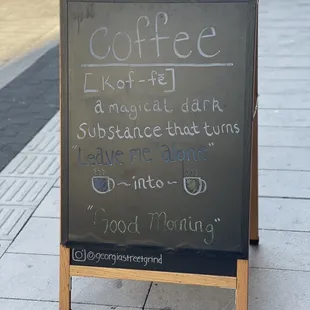 coffee
[Kof-fē]
a magical dark
Substance that turns
"Leave me alone"
~into~
"Good Morning"
@georgiastreetgrind